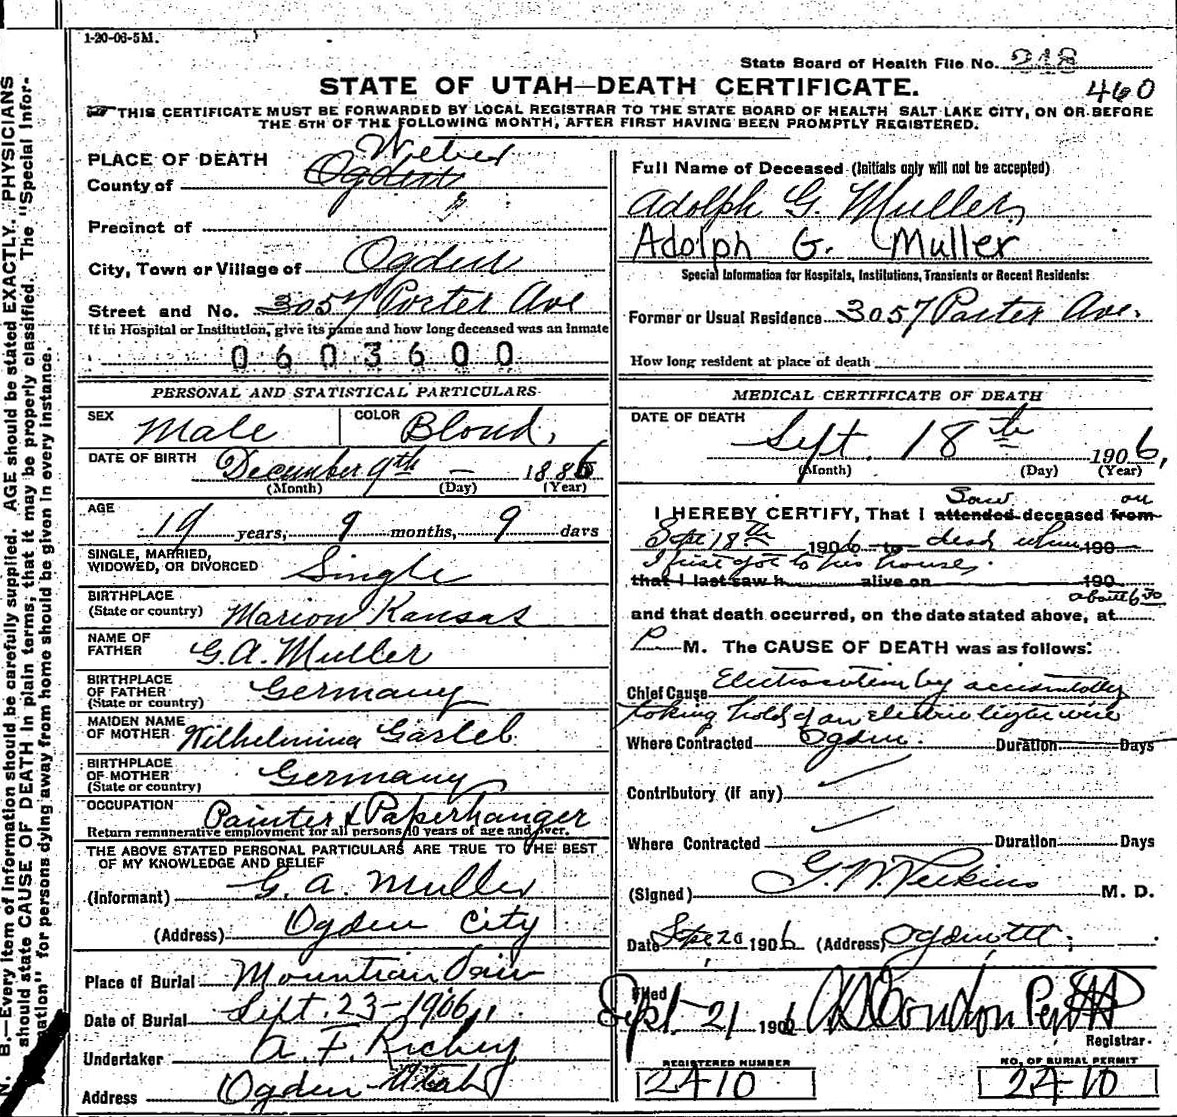 1-20-06-5M.
State Board of Health File No. 218
STATE OF UTAH—DEATH CERTIFICATE.
460
THIS CERTIFICATE MUST BE FORWARDED BY LOCAL REGISTRAR TO THE STATE BOARD OF HEALTH SALT LAKE CITY, ON OR BEFORE
THE 5TH OF THE FOLLOWING MONTH, AFTER FIRST HAVING BEEN PROMPTLY REGISTERED.
PLACE OF DEATH Weber
County of Ogden
Precinct of
City, Town or Village of Ogden
Street and No. 3057 Porter Ave
If in Hospital or Institution, give its name and how long deceased was an inmate
0603600
PERSONAL AND STATISTICAL PARTICULARS
SEX Male COLOR Blond,
DATE OF BIRTH December 9th 1886
(Month) (Day) (Year)
AGE
19 years, 9 months, 9 days
SINGLE, MARRIED,
WIDOWED, OR DIVORCED Single
BIRTHPLACE
(State or country) Marion Kansas
NAME OF
FATHER G.A. Muller
BIRTHPLACE
OF FATHER
(State or country) Germany
MAIDEN NAME
OF MOTHER Wilhelmina Garleb
BIRTHPLACE
OF MOTHER
(State or country) Germany
OCCUPATION Painter & Paperhanger
Return remunerative employment for all persons 10 years of age and over.
THE ABOVE STATED PERSONAL PARTICULARS ARE TRUE TO THE BEST
OF MY KNOWLEDGE AND BELIEF
(Informant) G. A. Muller
(Address) Ogden City
Place of Burial Mountian View
Date of Burial Sept. 23-1906,
Undertaker A. F. Richey
Address Ogden Utah
Full Name of Deceased (Initials only will not be accepted)
Adolph G. Muller,
Adolph G. Muller
Special Information for Hospitals, Institutions, Transients or Recent Residents:
Former or Usual Residence 3057 Porter Ave.
How long resident at place of death
MEDICAL CERTIFICATE OF DEATH
DATE OF DEATH
Sept. 18th 1906,
(Month) (Day) (Year)
Saw on
I HEREBY CERTIFY, That I attended deceased from
Sept 18th 1906 to dead when 190
I just got to his house.
that I last saw h alive on 190
about 6 30
and that death occurred, on the date stated above, at
P M. The CAUSE OF DEATH was as follows:
Chief Cause Electrocution by accidentally
taking hold of an electric light wire
Where Contracted Ogden. Duration Days
Contributory (if any)
Where Contracted Duration Days
(Signed) G. W. Perkins M. D.
Date Sept 20 1906 (Address) Ogden Ut.
Filed
Sept. 21 1906
Registrar
REGISTERED NUMBER
2410
NO. OF BURIAL PERMIT
2410
N. B.—Every item of Information should be carefully supplied. AGE should be stated EXACTLY. PHYSICIANS
should state CAUSE OF DEATH in plain terms, that it may be properly classified. The "Special Infor-
mation" for persons dying away from home should be given in every instance.